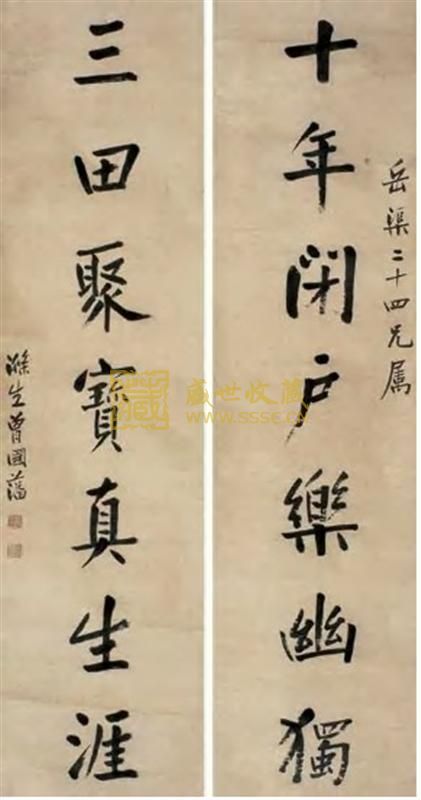 岳渠二十四兄属
十年闭户樂幽獨
三田聚寶真生涯
滌生曾國藩
盛世收藏
www.sssc.cn